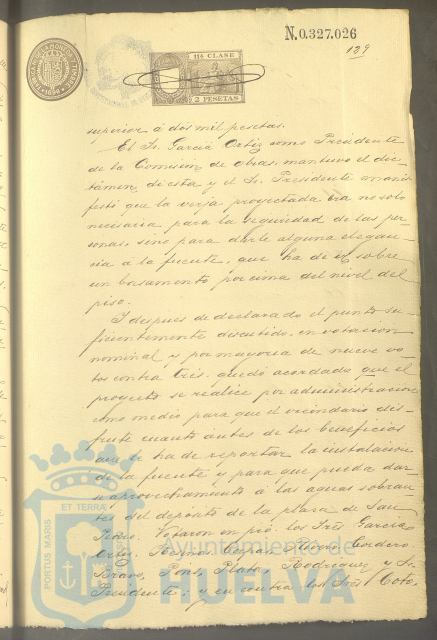 N.0.327.026
129
11ª CLASE
2 PESETAS
superior á dos mil pesetas.
El Sr. García Ortiz como Presidente
de la Comisión de obras, mantuvo el dic-
támen de esta y el Sr. Presidente mani-
festó que la verja proyectada era no solo
necesaria para la seguridad de las per-
sonas, sino para darle alguna elegan-
cia á la fuente, que ha de ir sobre
un basamento por cima del nivel del
piso.
Y despues de declarado el punto su-
ficientemente discutido, en votacion
nominal y por mayoria de nueve vo-
tos contra tres, quedó acordado que el
proyecto se realice por administracion
como medio para que el vecindario dis-
frute cuanto ántes de los beneficios
que le ha de reportar la instalacion
de la fuente y para que pueda dar-
se aprovechamiento á las aguas sobran-
tes del depósito de la plaza de San
Pedro. Votaron en pró: los Sres. García
Ortiz, Cordero
Bravo, Pons, Plata, Rodriguez y Sr.
Presidente; y en contra los Sres. Coto,
PORTUS MARIS ET TERRÆ
Ayuntamiento de
HUELVA